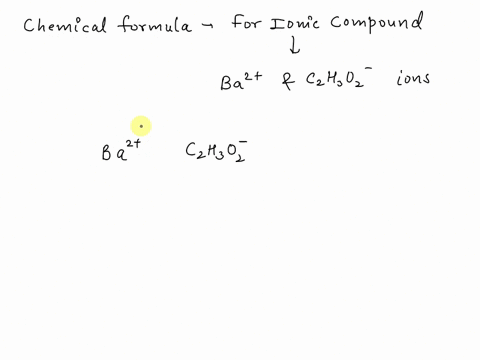 Chemical formula - For Ionic Compound
↓
Ba²⁺ & C₂H₃O₂⁻ ions
Ba²⁺ C₂H₃O₂⁻